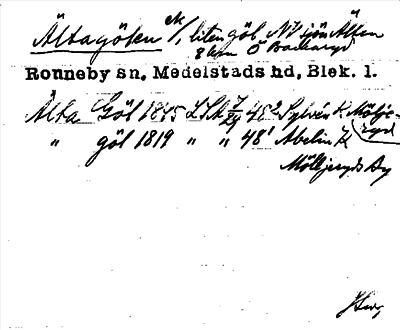 Ältagölen ek/, liten göl, NV sjön Älten
8 km Ö Backaryd
Ronneby sn, Medelstads hd, Blek. l.
Älta Göl 1845 LSA 7/29 48² Sylvén K Möljeryd
" göl 1819 " " 48¹ Abelin K
Mölljeryds By